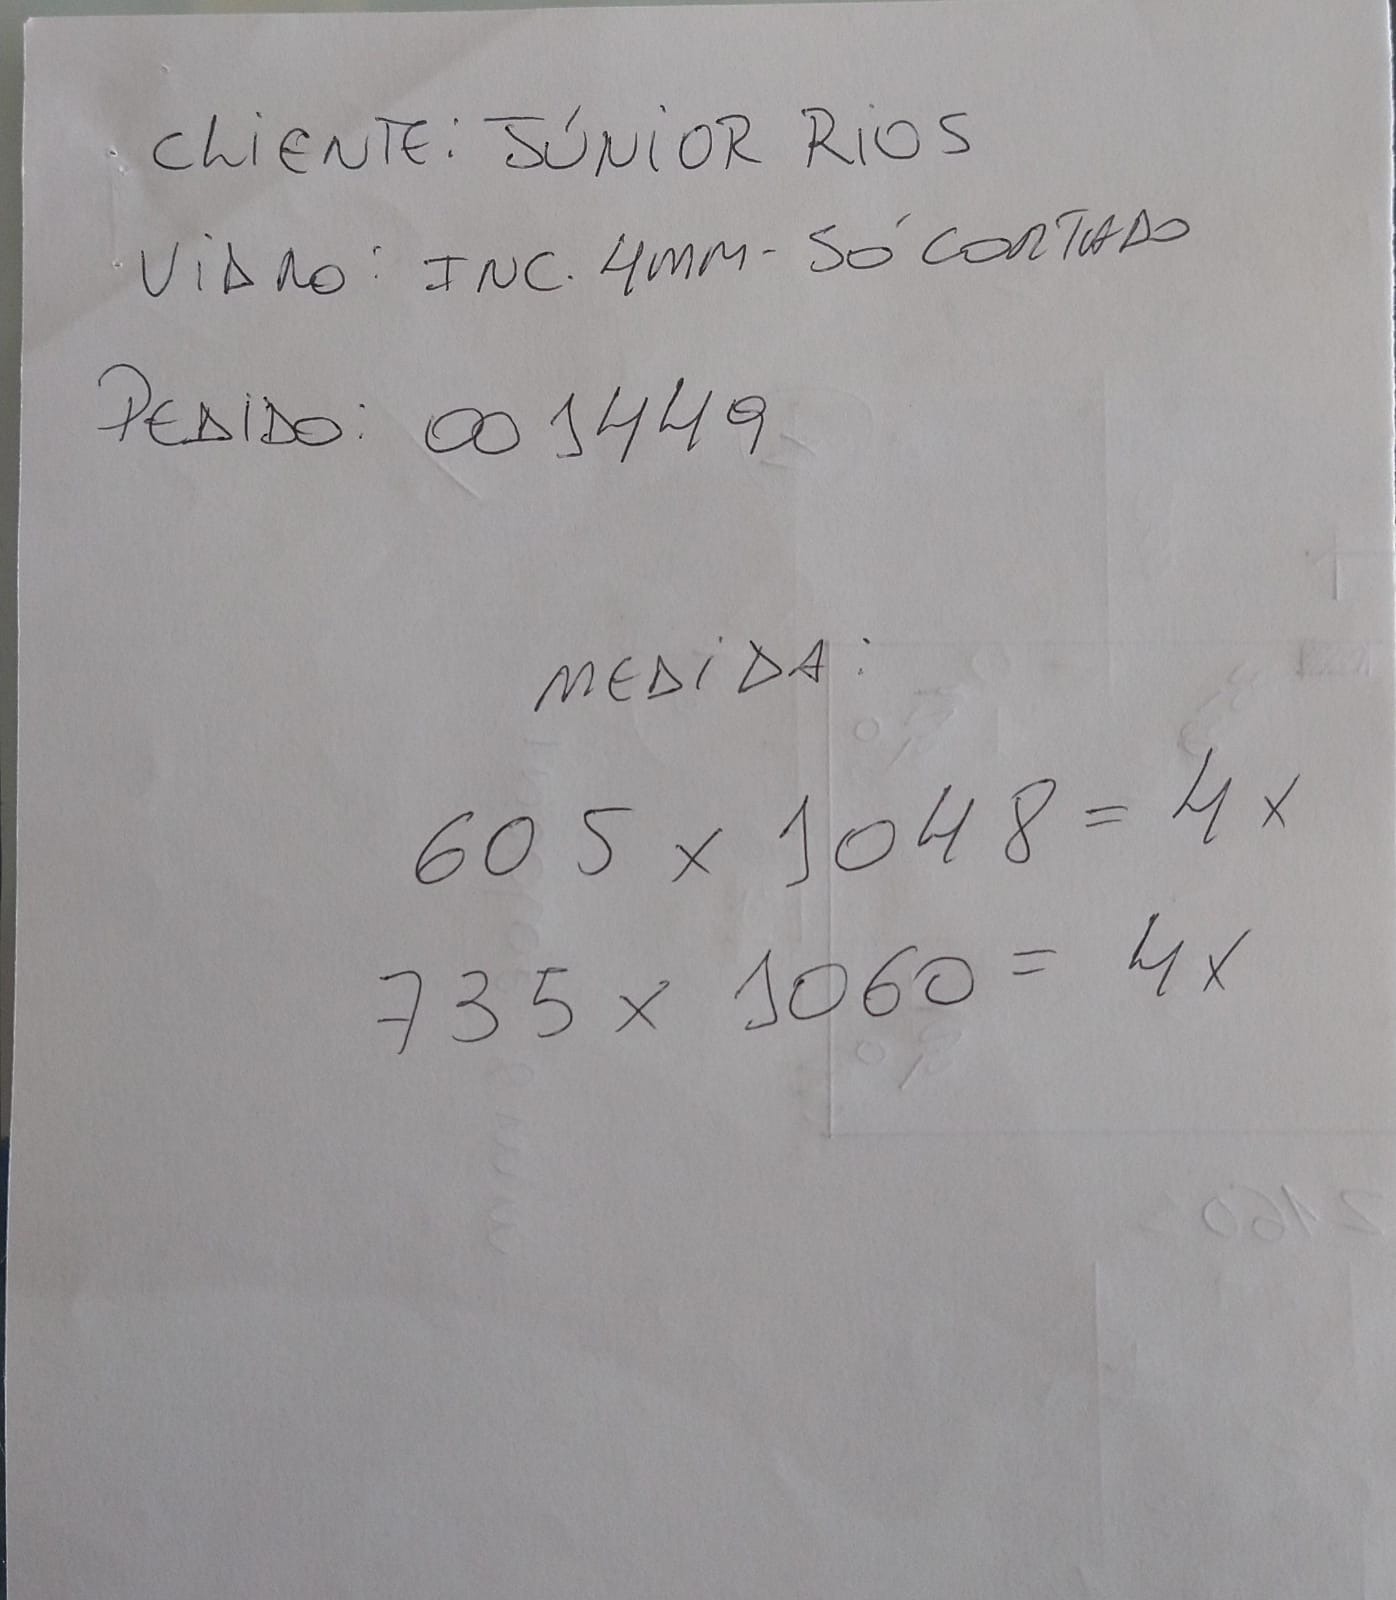 CLIENTE: JÚNIOR RIOS
VIDRO: INC. 4MM - SÓ CORTADO
PEDIDO: 001449
MEDIDA:
605 x 1048 = 4x
735 x 1060 = 4x
2160